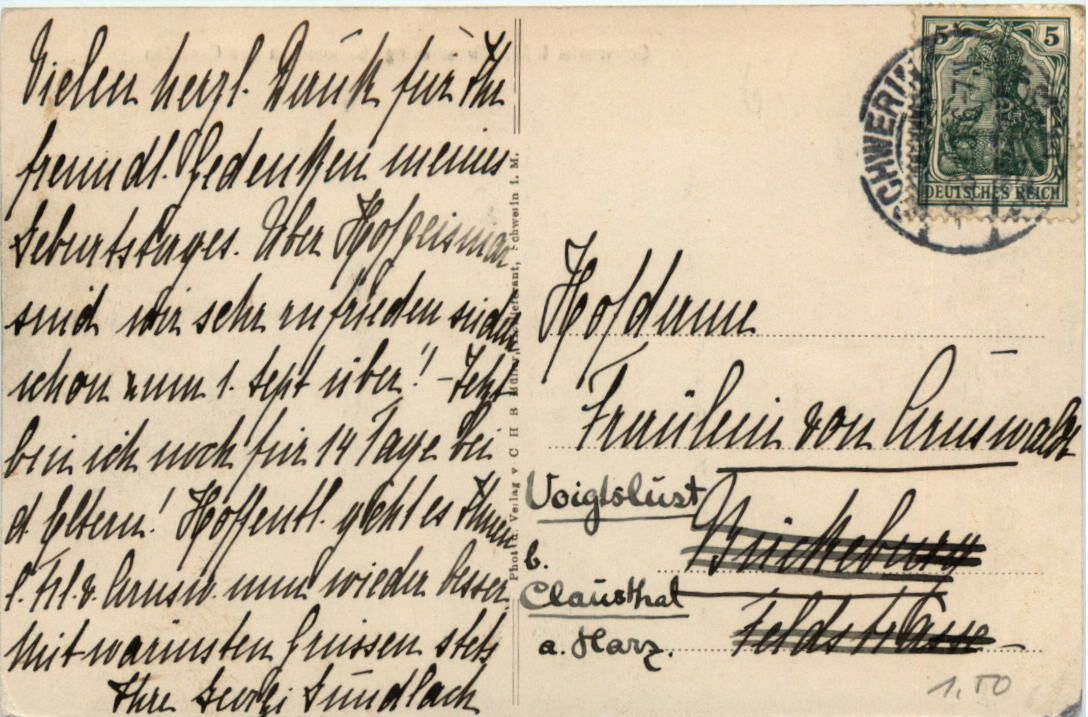 Vielen herzl. Dank für Ihr
freundl. Gedenken meines
Geburtstages. Über Hofgeismar
sind wir sehr zufrieden siedeln
schon zum 1. Sept über! – Jetzt
bin ich noch für 14 Tage bei
d. Eltern! Hoffentl. geht es Ihnen
l. Frl. v. Arnsw. nun wieder besser.
Mit wärmsten Grüssen stets
Ihre Gundlach
Phot. u. Verlag v. C H B Müller, Schwerin i. M.
5 5
DEUTSCHES REICH
SCHWERIN
Hofdame
Fräulein von Arnswaldt
Bückeburg
Feldstrasse
Voigtslust
b.
Clausthal
a. Harz.
1.50